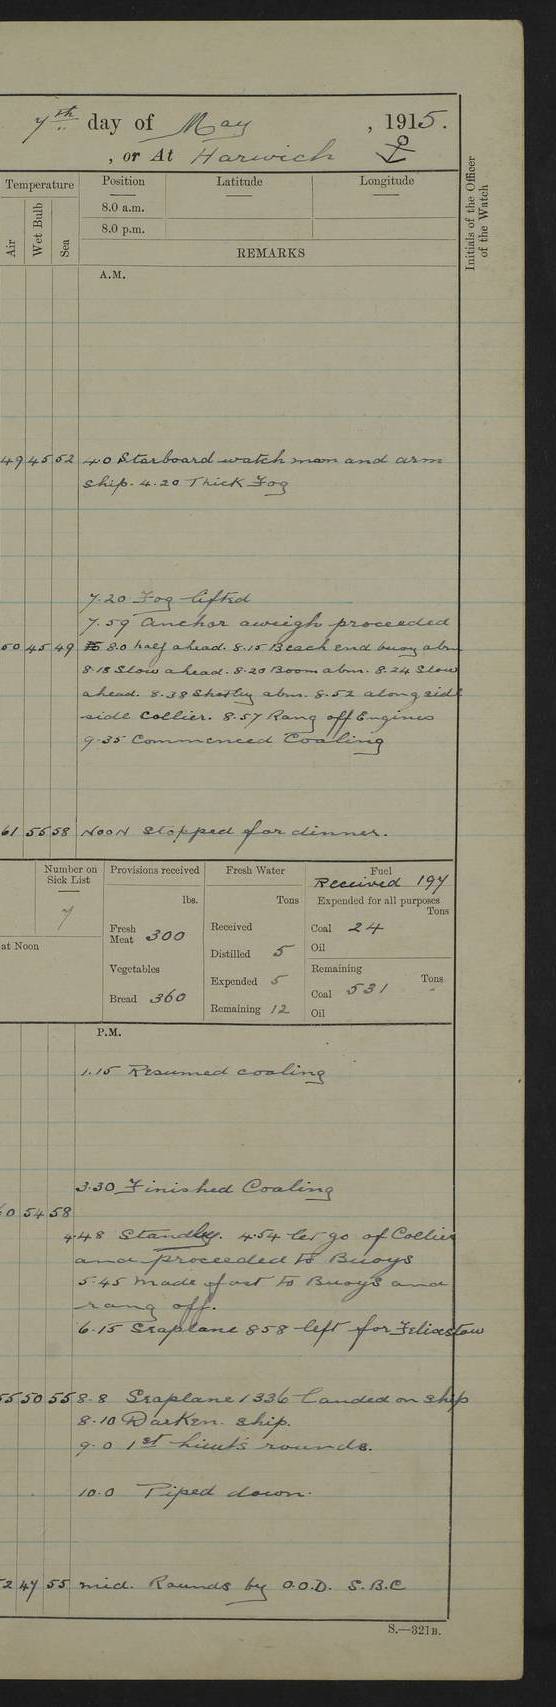 7th day of May, 1915.
, or At Harwich
Temperature
Air
Wet Bulb
Sea
Position
Latitude
Longitude
8.0 a.m.
8.0 p.m.
REMARKS
Initials of the Officer of the Watch
A.M.
49 45 52 4.0 Starboard watch man and arm
ship. 4.20 Thick Fog
7.20 Fog lifted
7.59 Anchor aweigh proceeded
50 45 49 8.0 half ahead. 8.15 Beach end buoy abm
8.18 Slow ahead. 8.20 Boom abm. 8.24 Slow
ahead. 8.38 Shotley abm. 8.52 along side
side Collier. 8.57 Rang off Engines
9.35 Commenced Coaling
61 55 58 Noon Stopped for dinner.
Number on Sick List
7
at Noon
Provisions received
lbs.
Fresh Meat 300
Vegetables
Bread 360
Fresh Water
Tons
Received
Distilled 5
Expended 5
Remaining 12
Fuel
Received 197
Expended for all purposes
Tons
Coal 24
Oil
Remaining
Tons
Coal 531
Oil
P.M.
1.15 Resumed coaling
3.30 Finished Coaling
60 54 58
4.48 Standby. 4.54 let go of Collier
and proceeded to Buoys
5.45 Made fast to Buoys and
rang off.
6.15 Seaplane 858 left for Felixstow
55 50 55 8.8 Seaplane 1336 landed on ship
8.10 Darken ship.
9.0 1st Lieut's rounds.
10.0 Piped down.
52 47 55 mid. Rounds by O.O.D. S.B.C
S.—321B.